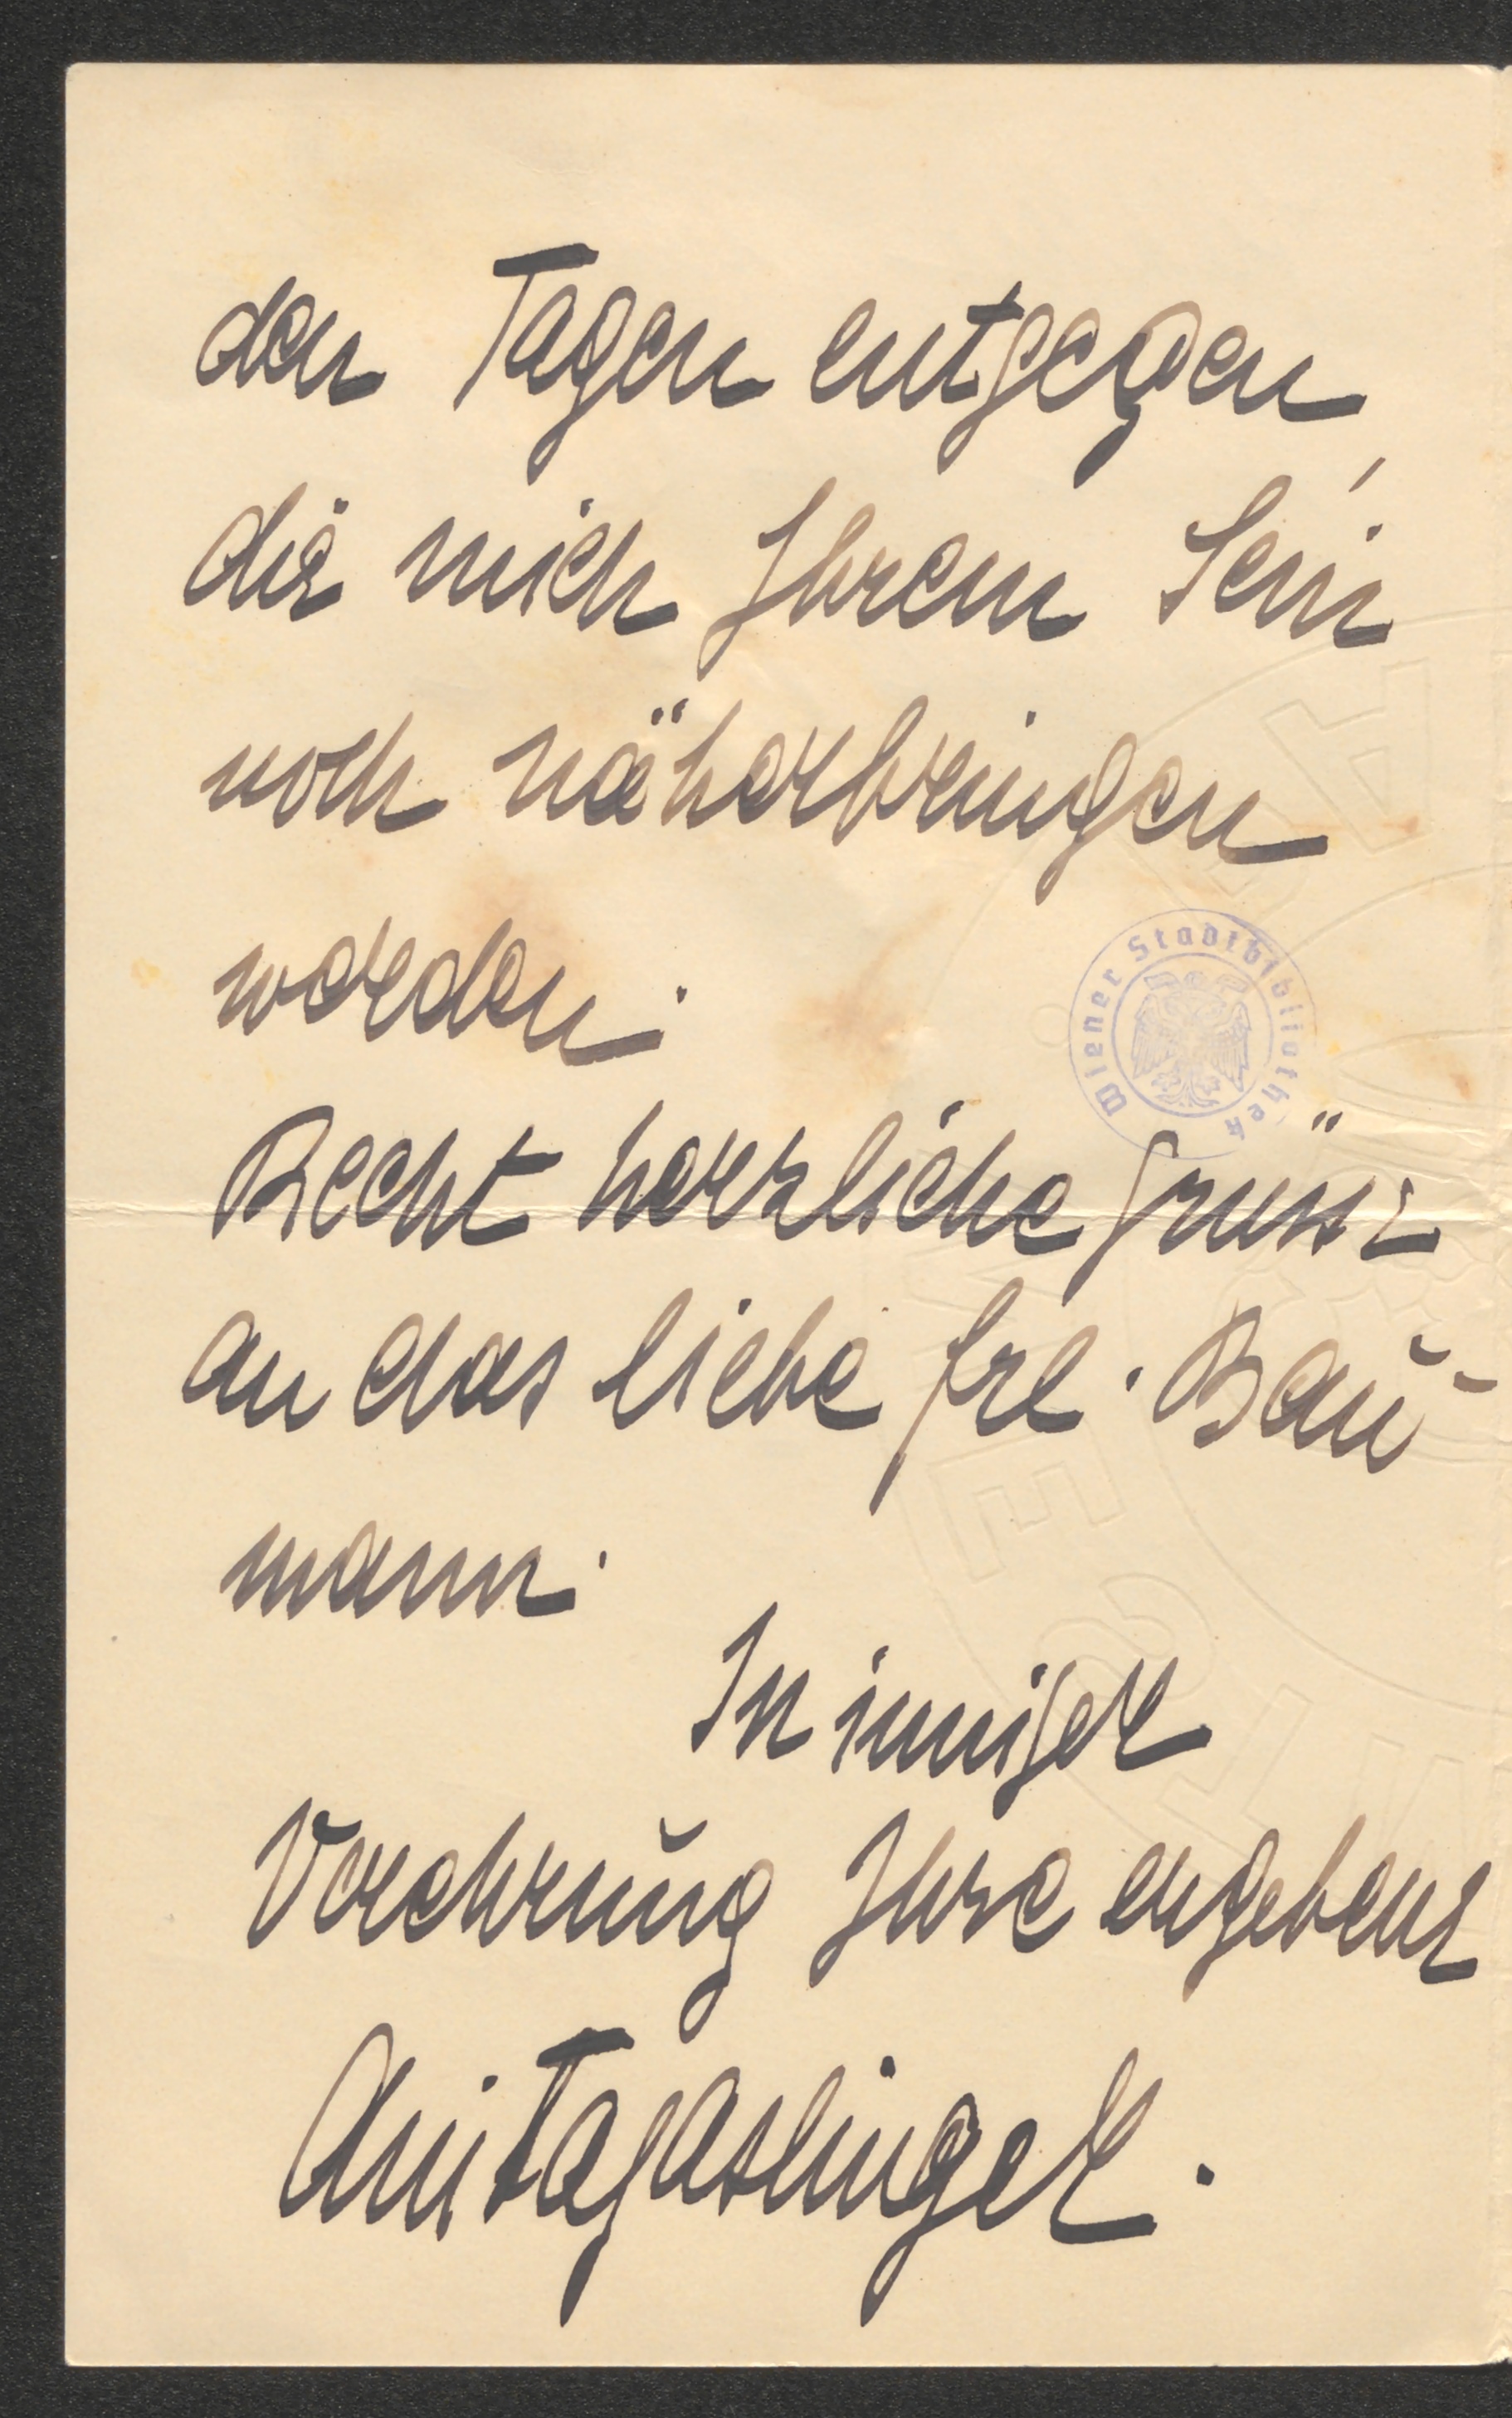 den Tagen entgegen,
die mich Ihrem Sein
noch näherbringen
werden.
Wiener Stadtbibliothek
Recht herzliche Grüsse
an das liebe Frl. Bau-
mann.
In inniger
Verehrung Ihre ergebene
Anita